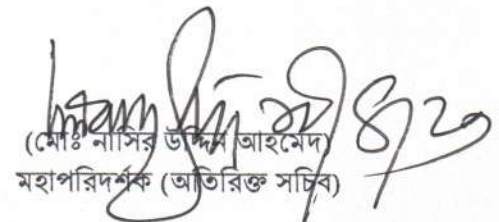 (মোঃ নাসির উদ্দিন আহমেদ)
মহাপরিদর্শক (অতিরিক্ত সচিব)